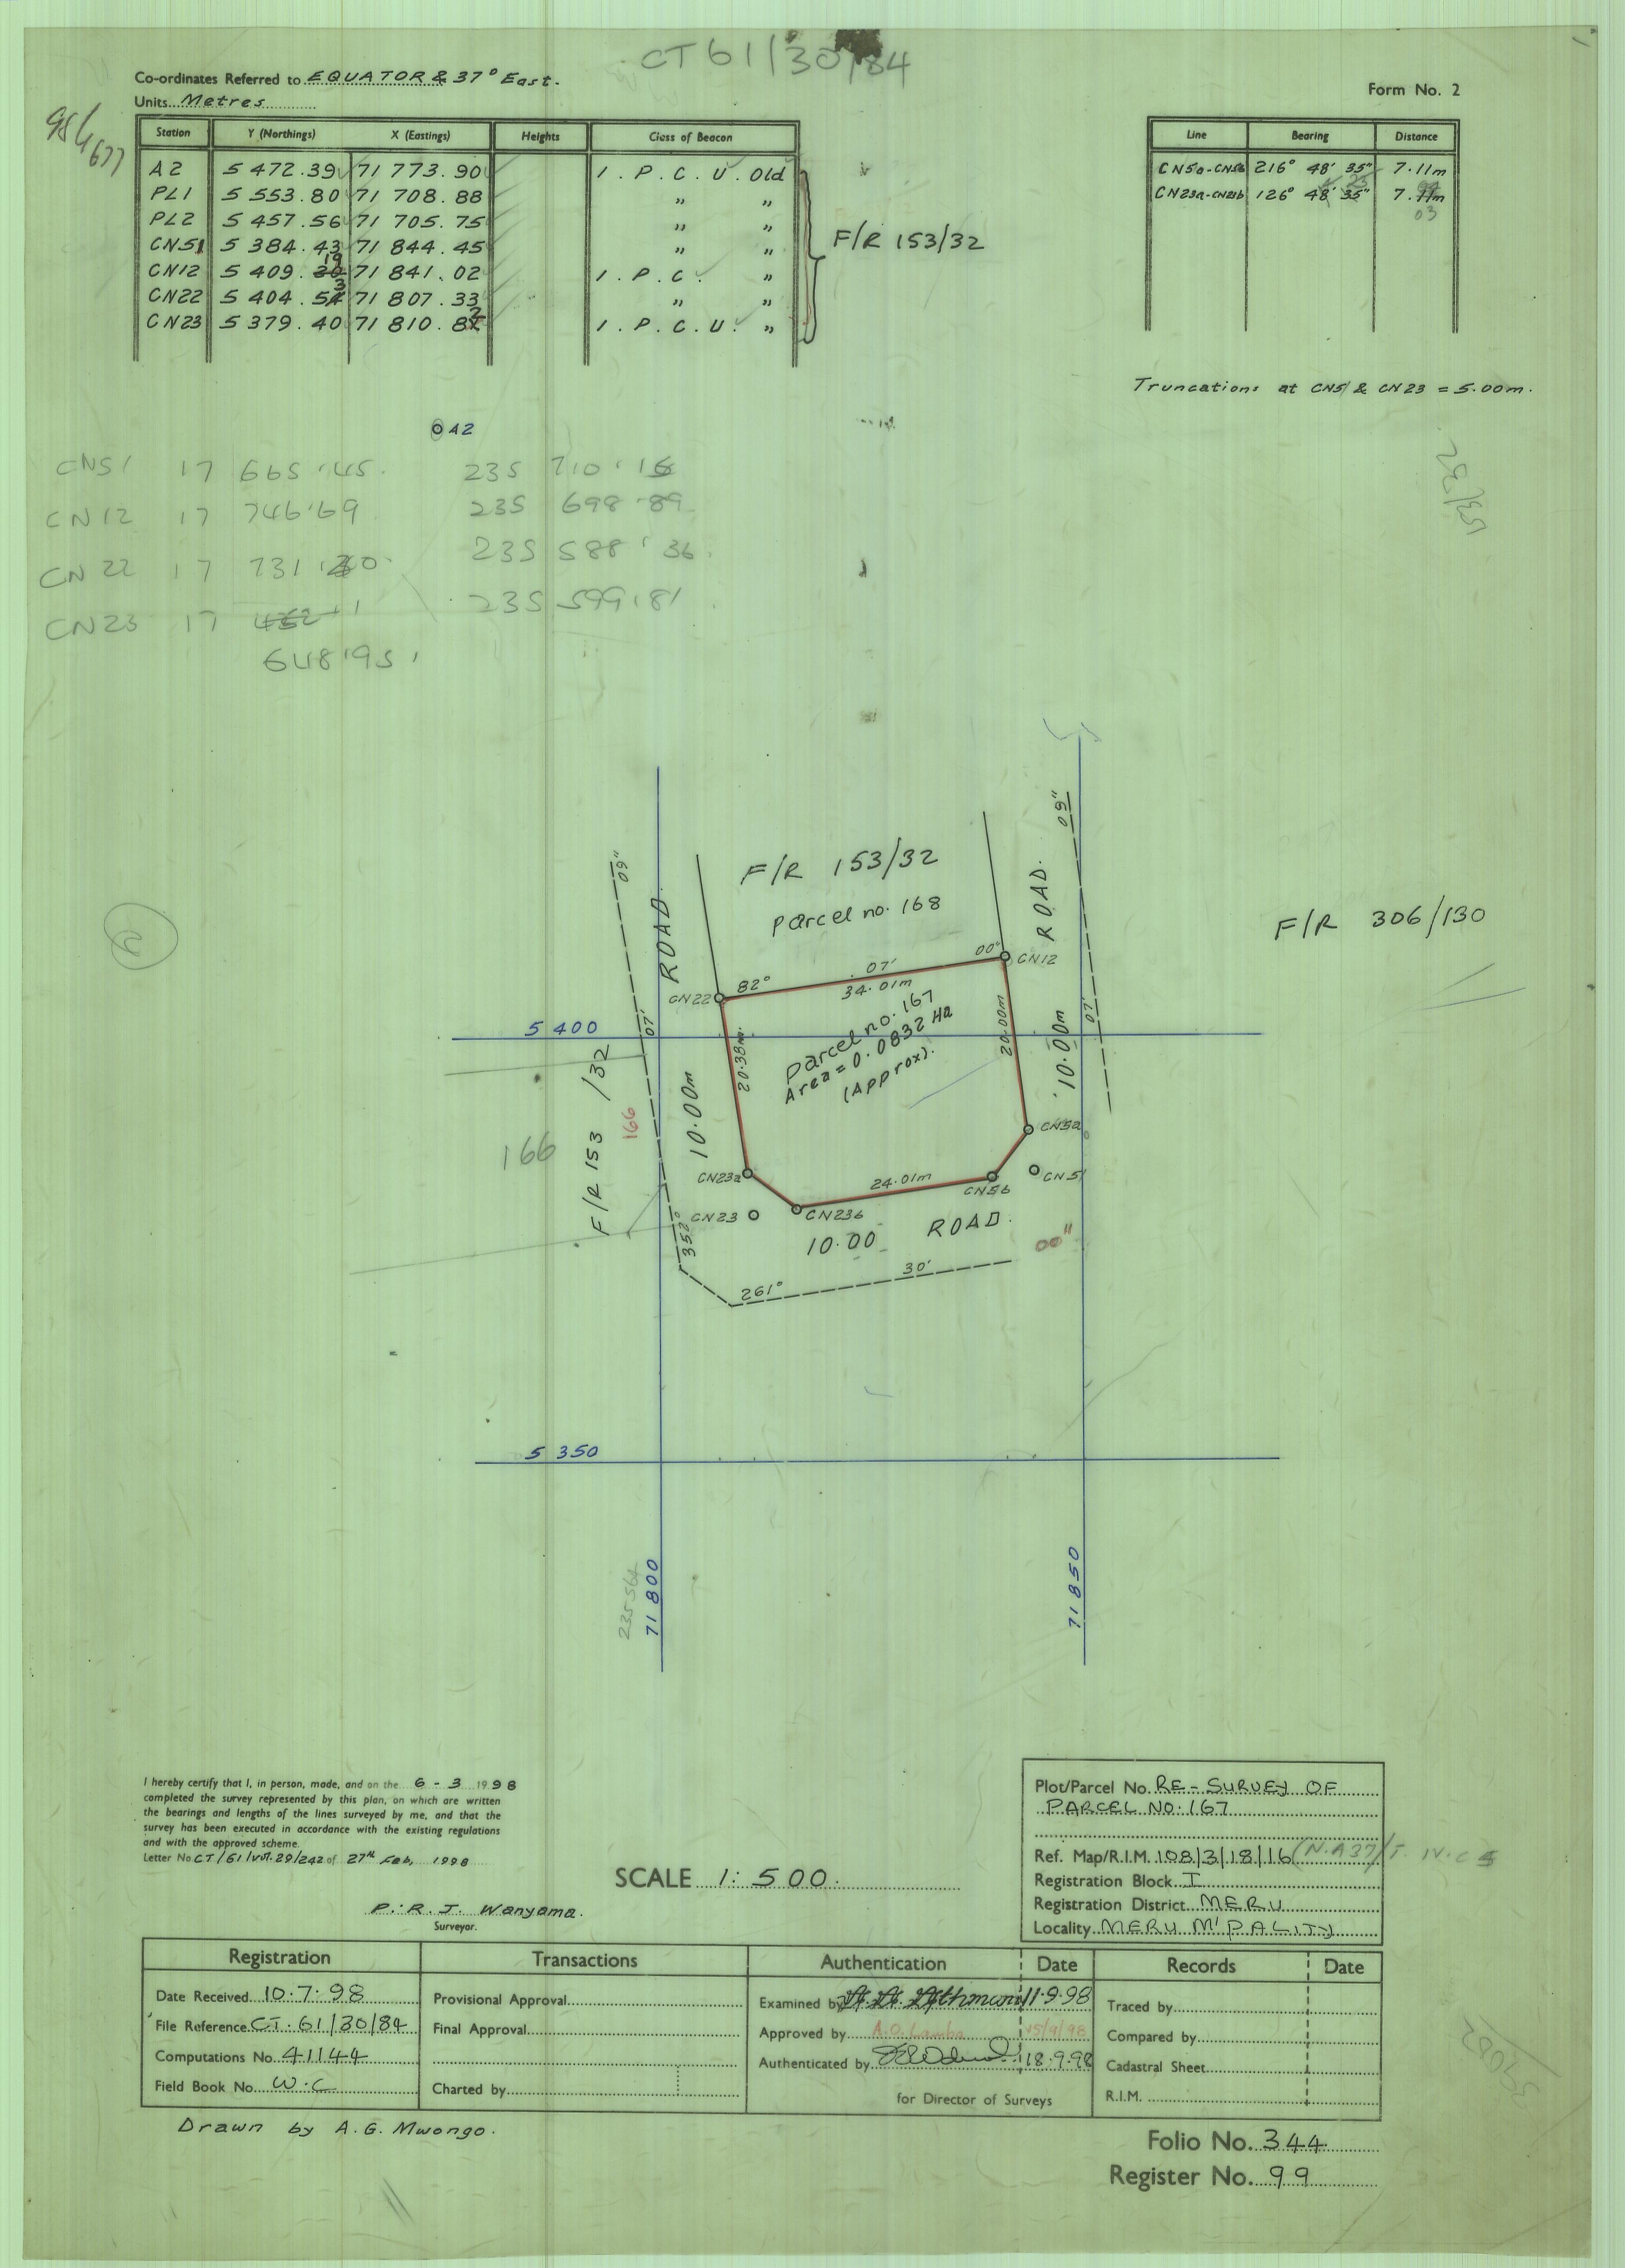 CT 61/30/84
Co-ordinates Referred to EQUATOR & 37° East.
Units Metres
Form No. 2
Station Y (Northings) X (Eastings) Heights Class of Beacon
A2 5 472.39 71 773.90 I.P.C.U. Old
PL1 5 553.80 71 708.88 " "
PL2 5 457.56 71 705.75 " "
CN51 5 384.43 71 844.45 " "
CN12 5 409.19 71 841.02 I.P.C. "
CN22 5 404.53 71 807.33 " "
CN23 5 379.40 71 810.82 I.P.C.U. "
F/R 153/32
Line Bearing Distance
CN5a-CN5b 216° 48' 35" 7.11m
CN23a-CN23b 126° 48' 35" 7.11m
03
Truncations at CN51 & CN23 = 5.00m.
A2
CN51 17 665.45 235 710.16
CN12 17 746.69 235 698.89
CN22 17 731.30 235 588.36
CN23 17 235 599.81
648.95
153/32
F/R 153/32
Parcel no. 168
ROAD
09"
ROAD.
09"
F/R 306/130
CN22 82° 07' 00" CN12
34.01m
Parcel no. 167
Area = 0.0832 Ha
(Approx).
5 400
07'
20.38m
20.00m
10.00m
07'
10.00m
F/R 153/32
166
166
CN5a
CN51
CN5b
24.01m
CN23a
CN23
CN23b
352°
10.00 ROAD.
00"
261° 30'
5 350
71 800
235 564
71 850
I hereby certify that I, in person, made, and on the 6-3 1998
completed the survey represented by this plan, on which are written
the bearings and lengths of the lines surveyed by me, and that the
survey has been executed in accordance with the existing regulations
and with the approved scheme.
Letter No CT/61/Vol.29/242 of 27th Feb, 1998
P.R.J. Wanyama.
Surveyor.
SCALE 1:500.
Plot/Parcel No. RE-SURVEY OF
PARCEL NO. 167
Ref. Map/R.I.M. 108/3/18/16 (N.A37/
Registration Block I
Registration District MERU
Locality MERU M'PALITY
Registration Transactions Authentication Date Records Date
Date Received 10.7.98
File Reference CT.61/30/84
Computations No 41144
Field Book No W.C
Provisional Approval
Final Approval
Charted by
Examined by 11.9.98
Approved by A.O. Lamba 15/9/98
Authenticated by 18.9.98
for Director of Surveys
Traced by
Compared by
Cadastral Sheet
R.I.M.
Drawn by A.G. Mwongo.
Folio No. 344
Register No. 99